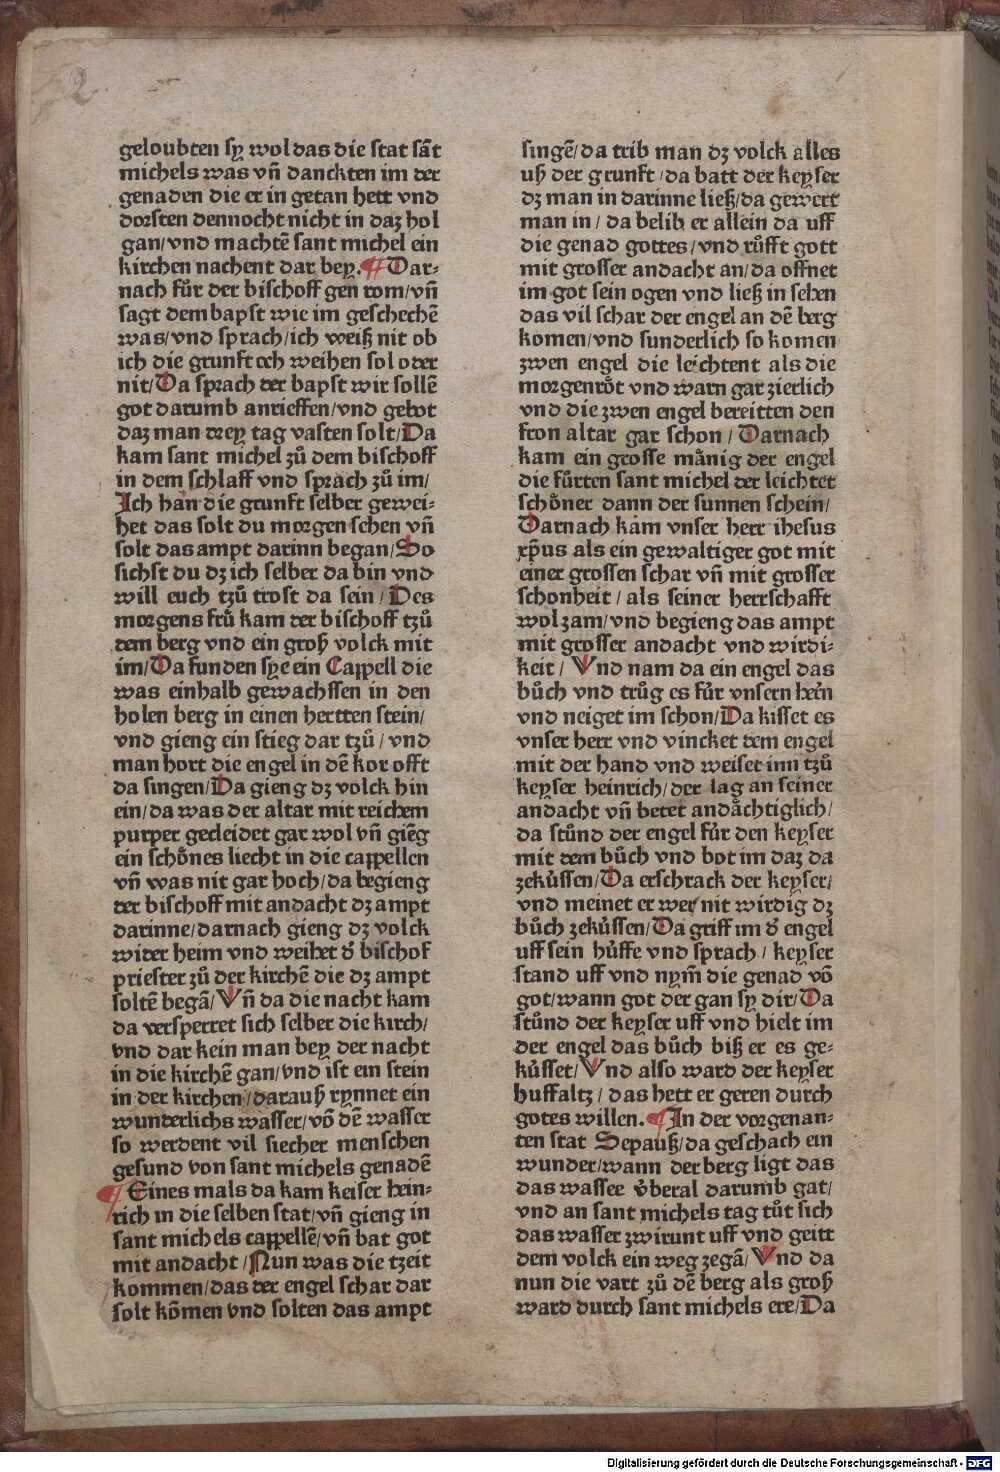 geloubten sy wol das die stat sāt
michels was vn̄ danckten im der
genaden die er in getan hett vnd
dorsten dennocht nicht in daz hol
gan/vnd machtē sant michel ein
kirchen nachent dar bey. ¶ Dar⸗
nach fůr der bischoff gen rom/vn̄
sagt dem bapst wie im geschechē
was/vnd sprach/ich weiß nit ob
ich die grunft och weihen sol oder
nit/Da sprach der bapst wir sollē
got darumb anrieffen/vnd gebot
daz man drey tag vasten solt/Da
kam sant michel zů dem bischoff
in dem schlaff vnd sprach zů im/
Ich han die grunft selber gewei⸗
het das solt du morgen sehen vn̄
solt das ampt darinn began/So
sichst du dz ich selber da bin vnd
will euch tzů trost da sein/Des
morgens frů kam der bischoff tzů
dem berg vnd ein groß volck mit
im/Da funden sye ein Cappell die
was einhalb gewachssen in den
holen berg in einen hertten stein/
vnd gieng ein stieg dar tzů/vnd
man hort die engel in dē kor offt
da singen/Da gieng dz volck hin
ein/da was der altar mit reichem
purper gecleidet gar wol vn̄ giēg
ein schönes liecht in die cappellen
vn̄ was nit gar hoch/da begieng
der bischoff mit andacht dz ampt
darinne/darnach gieng dz volck
wider heim vnd weihet d' bischof
priester zů der kirchē die dz ampt
soltē begā/Vn̄ da die nacht kam
da versperret sich selber die kirch/
vnd dar kein man bey der nacht
in die kirchē gan/vnd ist ein stein
in der kirchen/darauß rynnet ein
wunderlichs wasser/vō dē wasser
so werdent vil siecher menschen
gesund von sant michels genadē
¶ Eines mals da kam keiser hein⸗
rich in die selben stat/vn̄ gieng in
sant michels cappellē/vn̄ bat got
mit andacht/Nun was die tzeit
kommen/das der engel schar dar
solt kōmen vnd solten das ampt
singē/da trib man dz volck alles
uß der grunft/da batt der keyser
dz man in darinne ließ/da gewert
man in/da belib er allein da uff
die genad gottes/vnd růfft gott
mit grosser andacht an/da offnet
im got sein ogen vnd ließ in sehen
das vil schar der engel an dē berg
komen/vnd sunderlich so komen
zwen engel die leichtent als die
morgenröt vnd warn gar zierlich
vnd die zwen engel bereitten den
fron altar gar schon/Darnach
kam ein grosse mänig der engel
die fůrten sant michel der leichtet
schöner dann der sunnen schein/
Darnach kam vnser herr ihesus
xp̄us als ein gewaltiger got mit
einer grossen schar vn̄ mit grosser
schonheit/als seiner herrschafft
wol zam/vnd begieng das ampt
mit grosser andacht vnd wirdi⸗
keit/Vnd nam da ein engel das
bůch vnd trůg es für vnsern herrē
vnd neiget im schon/Da kisset es
vnser herr vnd vincket dem engel
mit der hand vnd weiset inn tzů
keyser heinrich/der lag an seiner
andacht vn̄ betet andächtiglich/
da stůnd der engel für den keyser
mit dem bůch vnd bot im daz da
zeküssen/Da erschrack der keyser/
vnd meinet er wer nit wirdig dz
bůch zeküssen/Da griff im d' engel
uff sein hüffe vnd sprach/keyser
stand uff vnd nym̄ die genad vō
got/wann got der gan sy dir/Da
stůnd der keyser uff vnd hielt im
der engel das bůch biß er es ge⸗
küsset/Vnd also ward der keyser
huffaltz/das hett er geren durch
gotes willen. ¶ In der vorgenan⸗
ten stat Sepauß/da geschach ein
wunder/wann der berg ligt das
das wasser überal darumb gat/
vnd an sant michels tag tůt sich
das wasser zwirunt uff vnd geitt
dem volck ein weg zegā/Vnd da
nun die vart zů dē berg als groß
ward durch sant michels ere/Da
Digitalisierung gefördert durch die Deutsche Forschungsgemeinschaft - DFG